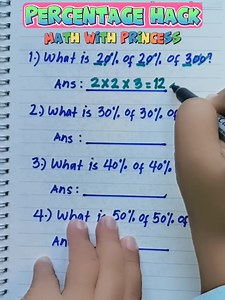 PERCENTAGE HACK
MATH WITH PRINCESS
1.) What is 20% of 20% of 300?
Ans: 2×2×3=12
2.) What is 30% of 30% of
Ans:
3.) What is 40% of 40%
Ans:
4.) What is 50% of 50% of
An